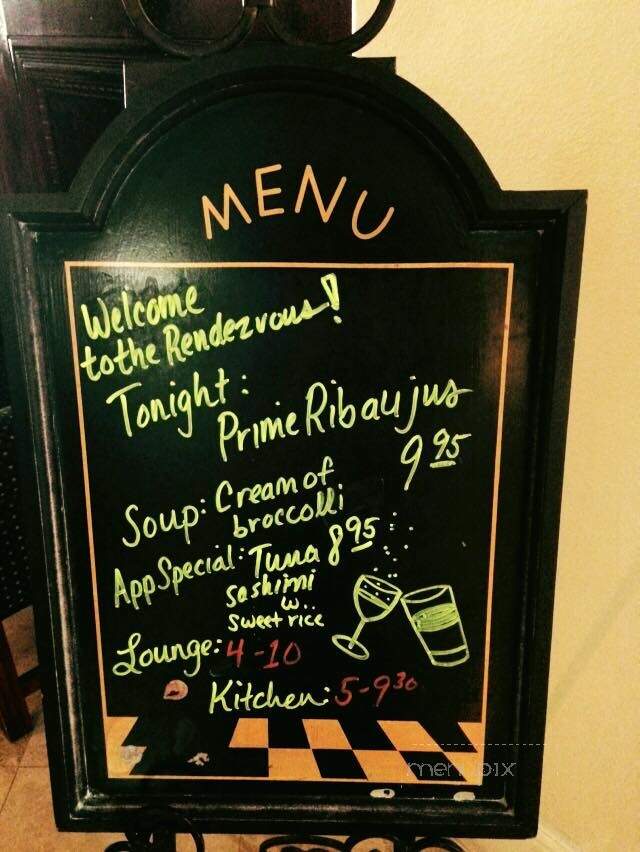 MENU
Welcome
to the Rendezvous!
Tonight:
Prime Rib au jus
9 95
Soup: Cream of
broccolli
App Special: Tuna 8 95
Sashimi
w..
Sweet rice
Lounge: 4-10
Kitchen: 5-9 30
menupix